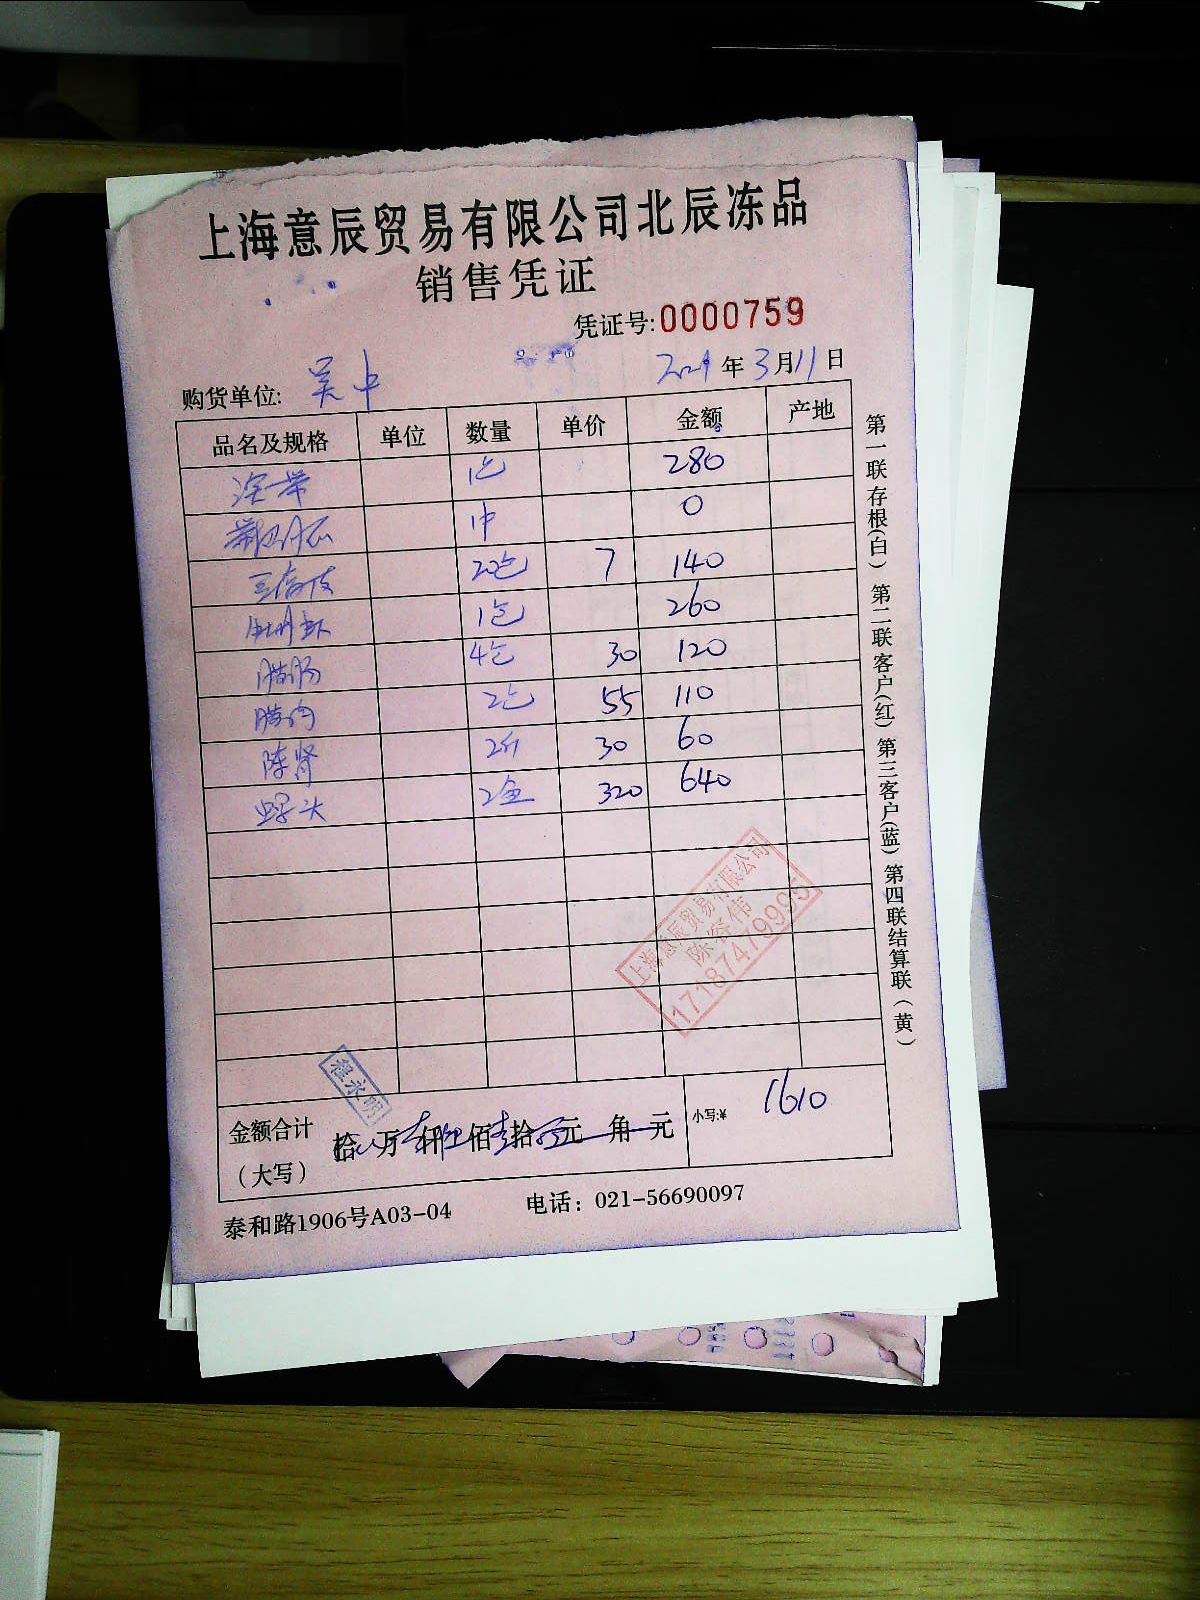 上海意辰贸易有限公司北辰冻品
销售凭证
凭证号:0000759
购货单位: 吴中 年3月11日
品名及规格 单位 数量 单价 金额 产地
1包 280
1中 0
20包 7 140
1包 260
腊肠 4包 30 120
2包 55 110
陈肾 2斤 30 60
2盒 320 640
上海意辰贸易有限公司
陈容伟
17187479995
程永明
金额合计 拾 万 仟 佰 拾 元 角 元 小写:¥ 1610
(大写)
泰和路1906号A03-04 电话: 021-56690097
第一联存根(白) 第二联客户(红) 第三客户(蓝) 第四联结算联(黄)